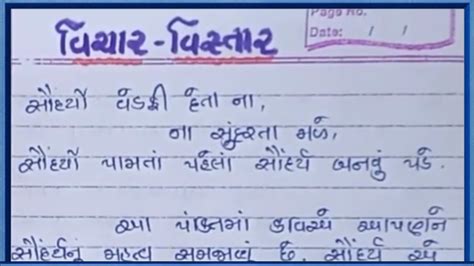 Page No.
Date: / /
વિચાર-વિસ્તાર
સૌંદર્યો વેડફી દેતા ના,
ના સુંદરતા મળે,
સૌંદર્યો પામતાં પહેલાં સૌંદર્ય બનવું પડે.
આ પંક્તિમાં કવિએ આપણને
સૌંદર્યનું મહત્વ સમજાવ્યું છે. સૌંદર્ય એ